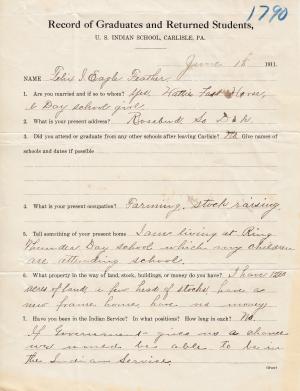 1790
Record of Graduates and Returned Students,
U. S. INDIAN SCHOOL, CARLISLE, PA.
June 15 1911.
NAME Felix I. Eagle Feather
1. Are you married and if so to whom? Yes. Hattie Fast Horse,
a Day school girl.
2. What is your present address? Rosebud So Dak
3. Did you attend or graduate from any other schools after leaving Carlisle? No Give names
of schools and dates if possible
4. What is your present occupation? Farming, stock raising
5. Tell something of your present home I am living at Ring
Thunder Day school which my children
are attending school.
6. What property in the way of land, stock, buildings, or money do you have? I have
acres of land, a few head of stocks, have a
new frame house, have no money
7. Have you been in the Indian Service? In what positions? How long in each? No.
If Government gives me a chance
would be able to be in
the Indian Service.
(Over)